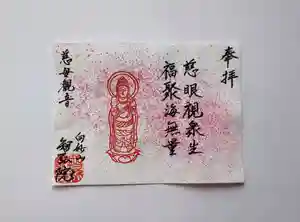 奉拝
慈眼視衆生
福聚海無量
慈母観音